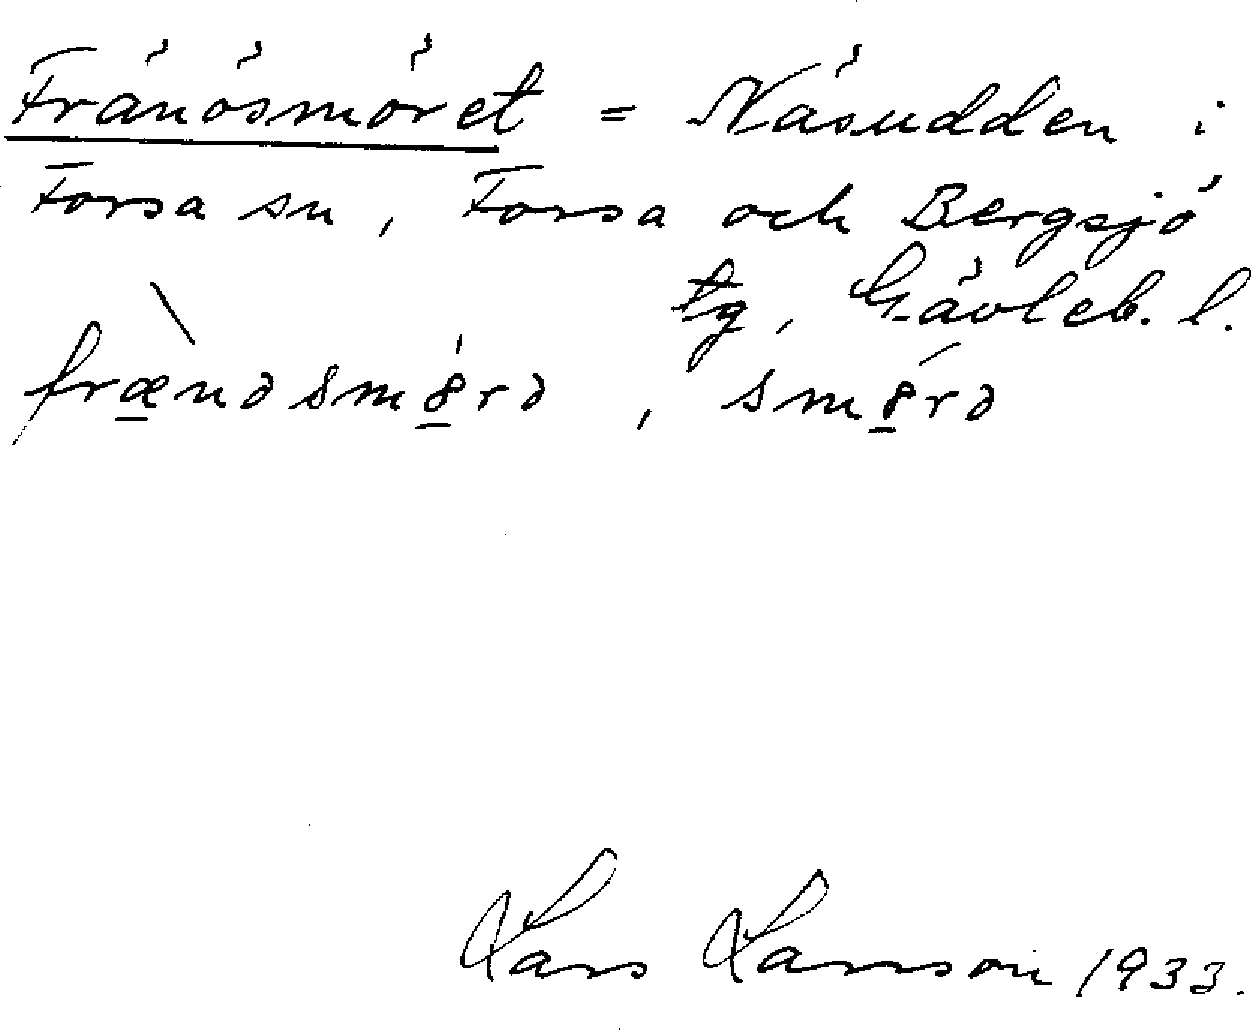 Fränösmöret = Näsudden i
Forsa sn, Forsa och Bergsjö
tg, Gävleb. l.
frænəsmörə, smörə
Lars Larsson 1933.